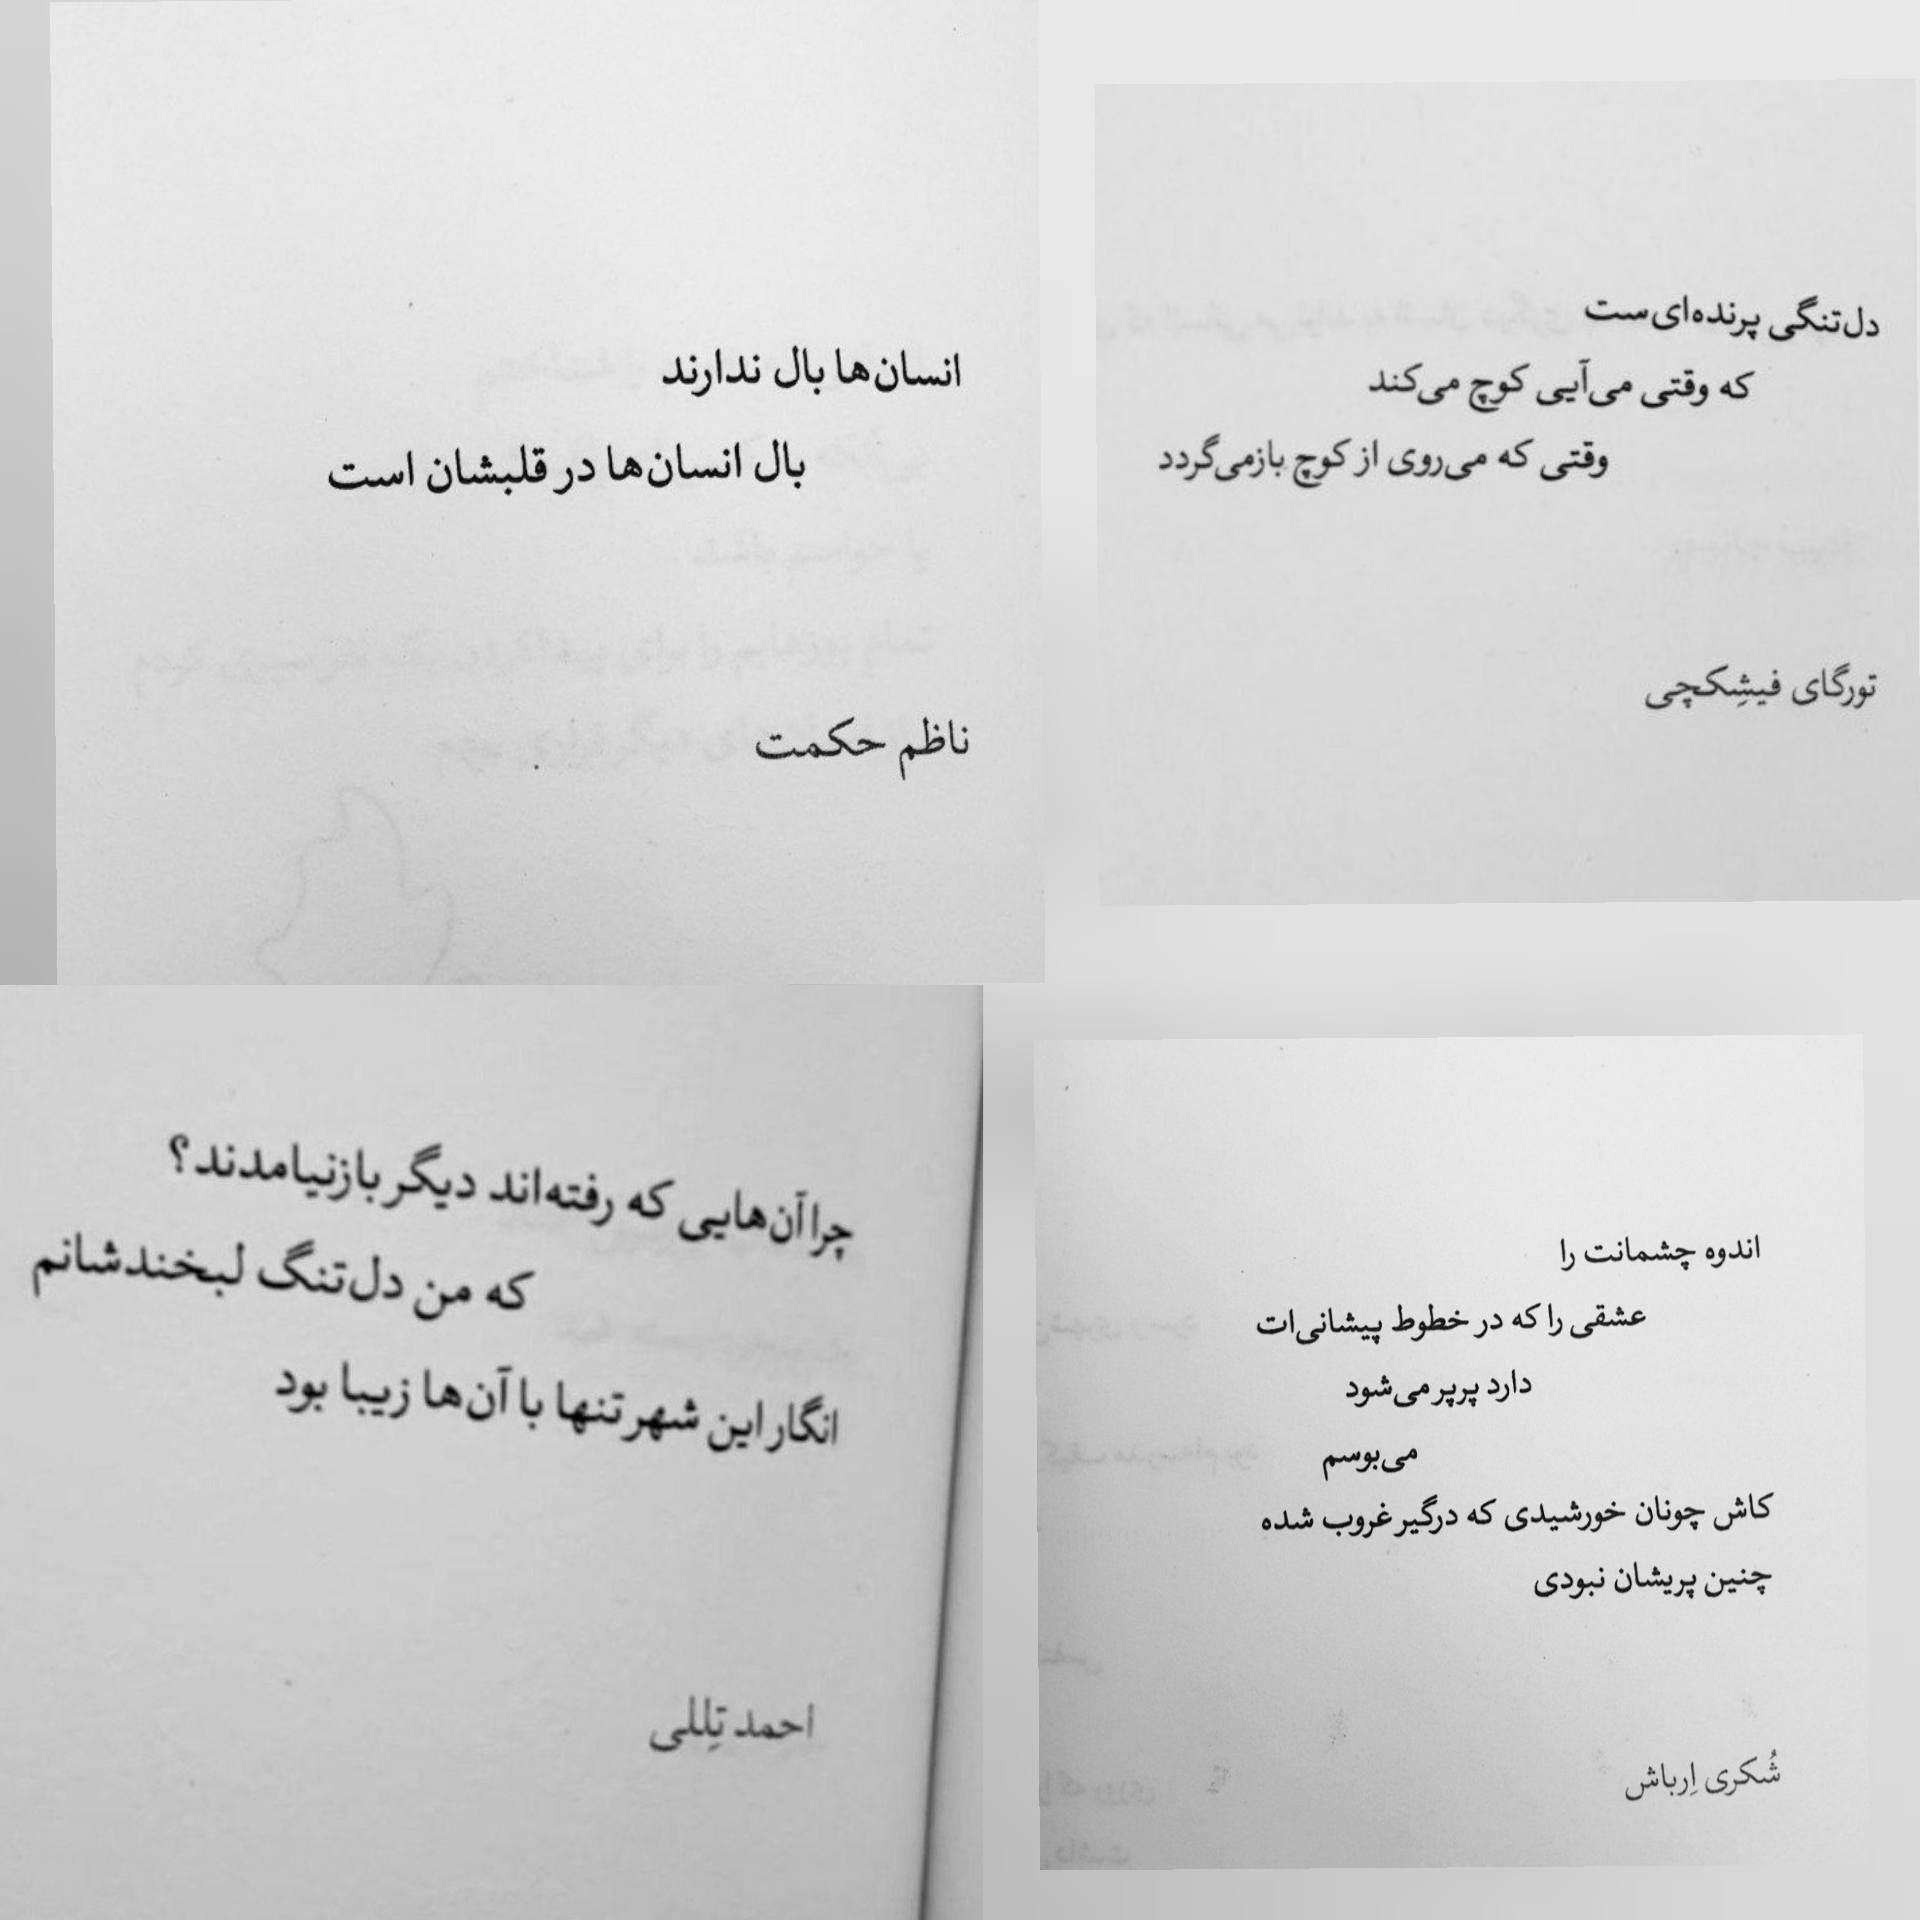 انسان‌ها بال ندارند
بال انسان‌ها در قلبشان است
ناظم حکمت
دل‌تنگی پرنده‌ای‌ست
که وقتی می‌آیی کوچ می‌کند
وقتی که می‌روی از کوچ بازمی‌گردد
تورگای فیشِکچی
چرا آن‌هایی که رفته‌اند دیگر بازنیامدند؟
که من دل‌تنگ لبخندشانم
انگار این شهر تنها با آن‌ها زیبا بود
احمد تِللی
اندوه چشمانت را
عشقی را که در خطوط پیشانی‌ات
دارد پرپر می‌شود
می‌بوسم
کاش چونان خورشیدی که درگیر غروب شده
چنین پریشان نبودی
شُکری اِرباش